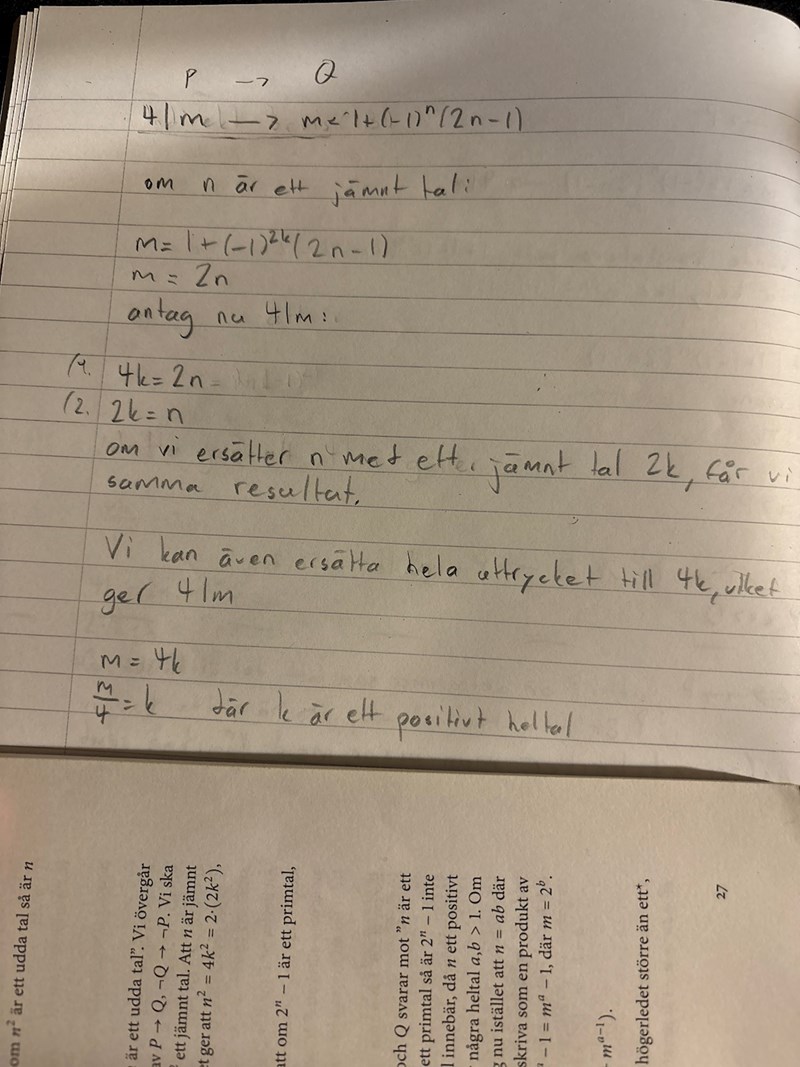 P → Q
4|m → m = 1+(-1)ⁿ(2n-1)
om n är ett jämnt tal:
m = 1+(-1)²ᵏ(2n-1)
m = 2n
antag nu 4|m:
(1. 4k = 2n
(2. 2k = n
om vi ersätter n met ett jämnt tal 2k, får vi
samma resultat.
Vi kan även ersätta hela uttrycket till 4k, vilket
ger 4|m
m = 4k
m/4 = k där k är ett positivt heltal
om n² är ett udda tal så är n
är ett udda tal”. Vi övergår
av P → Q, ¬Q → ¬P. Vi ska
ett jämnt tal. Att n är jämnt
et ger att n² = 4k² = 2·(2k²),
att om 2ⁿ − 1 är ett primtal,
och Q svarar mot ”n är ett
ett primtal så är 2ⁿ − 1 inte
l innebär, då n ett positivt
några heltal a,b > 1. Om
g nu istället att n = ab där
skriva som en produkt av
− 1 = mᵃ − 1, där m = 2ᵇ.
mᵃ⁻¹).
högerledet större än ett*,
27